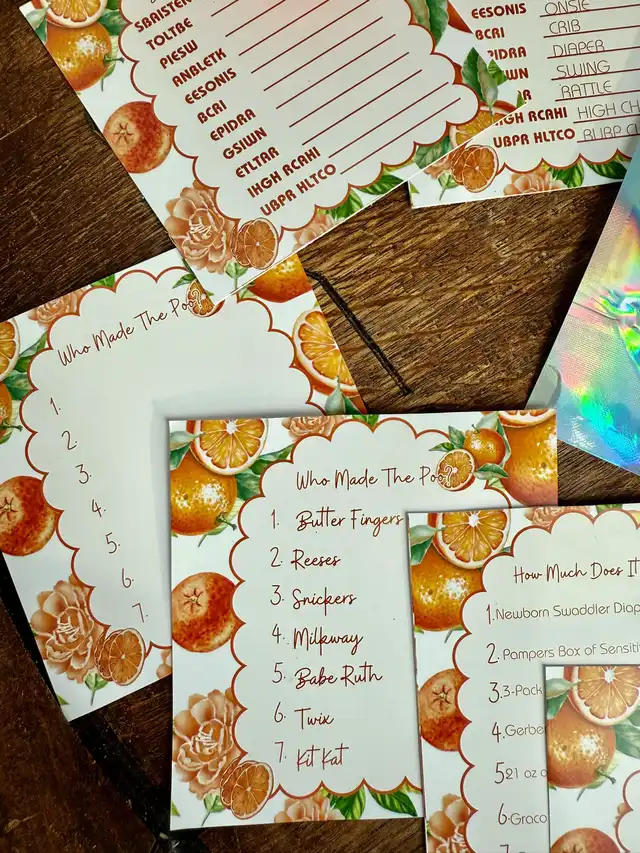 SBAISTEN
TOLTBE
PIESW
ANBLETK
EESONIS
BCRI
EPIDRA
GSIWN
ETLTAR
IHGH RCAHI
UBPR HLTCO
EESONIS ONSIE
BCRI CRIB
PIDRA DIAPER
WN SWING
AR RATTLE
HGH RCAHI HIGH CH
UBPR HLTCO BURP C
Who Made The Poo?
1.
2.
3.
4.
5.
6.
7.
Who Made The Poo?
1. Butter Fingers
2. Reeses
3. Snickers
4. Milkway
5. Babe Ruth
6. Twix
7. Kit Kat
How Much Does It
1. Newborn Swaddler Diap
2. Pampers Box of Sensiti
3. 3-Pack
4. Gerbe
5. 21 oz
6. Graco